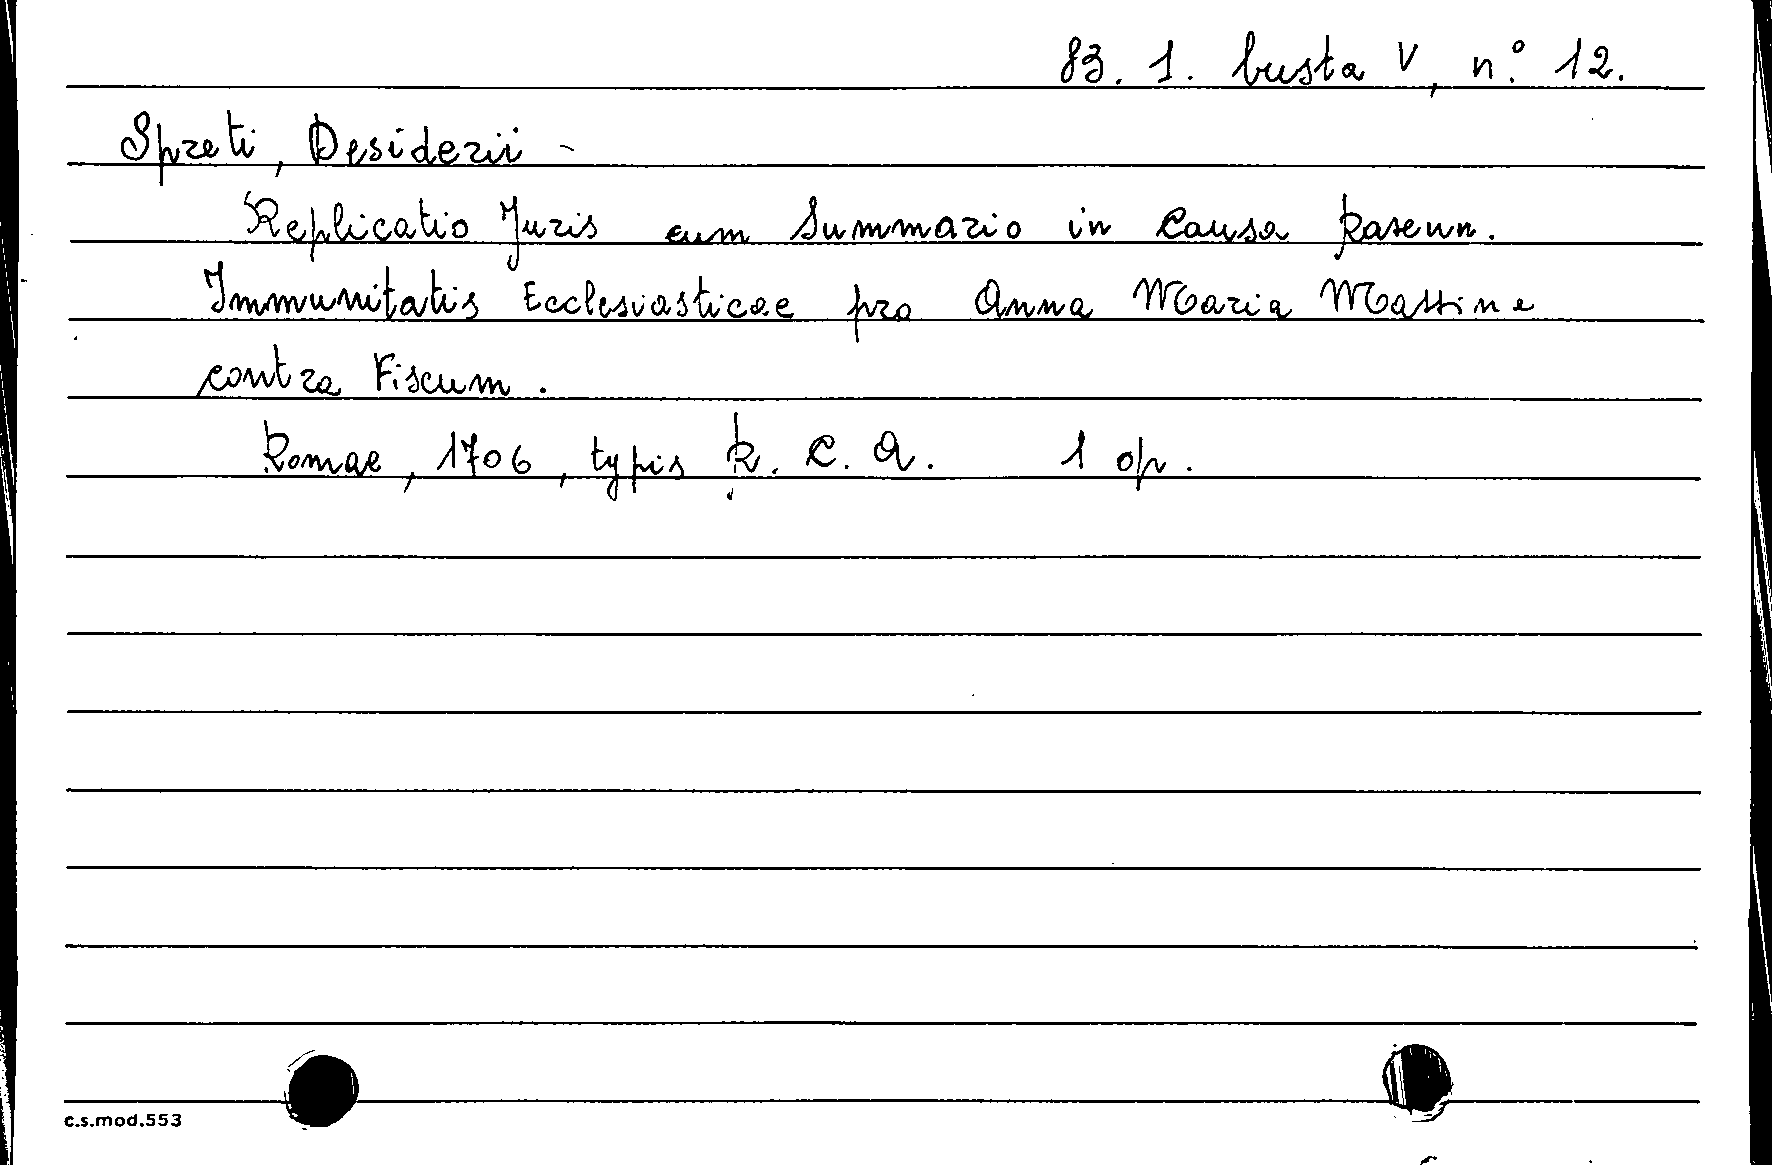 83. 1. busta V, n.° 12.
Spreti, Desiderii -
Replicatio Juris cum Summario in Causa Raven.
Immunitatis Ecclesiasticae pro Anna Maria Massine
contra Fiscum.
Romae, 1706, typis R. C. A. 1 op.
c.s.mod.553